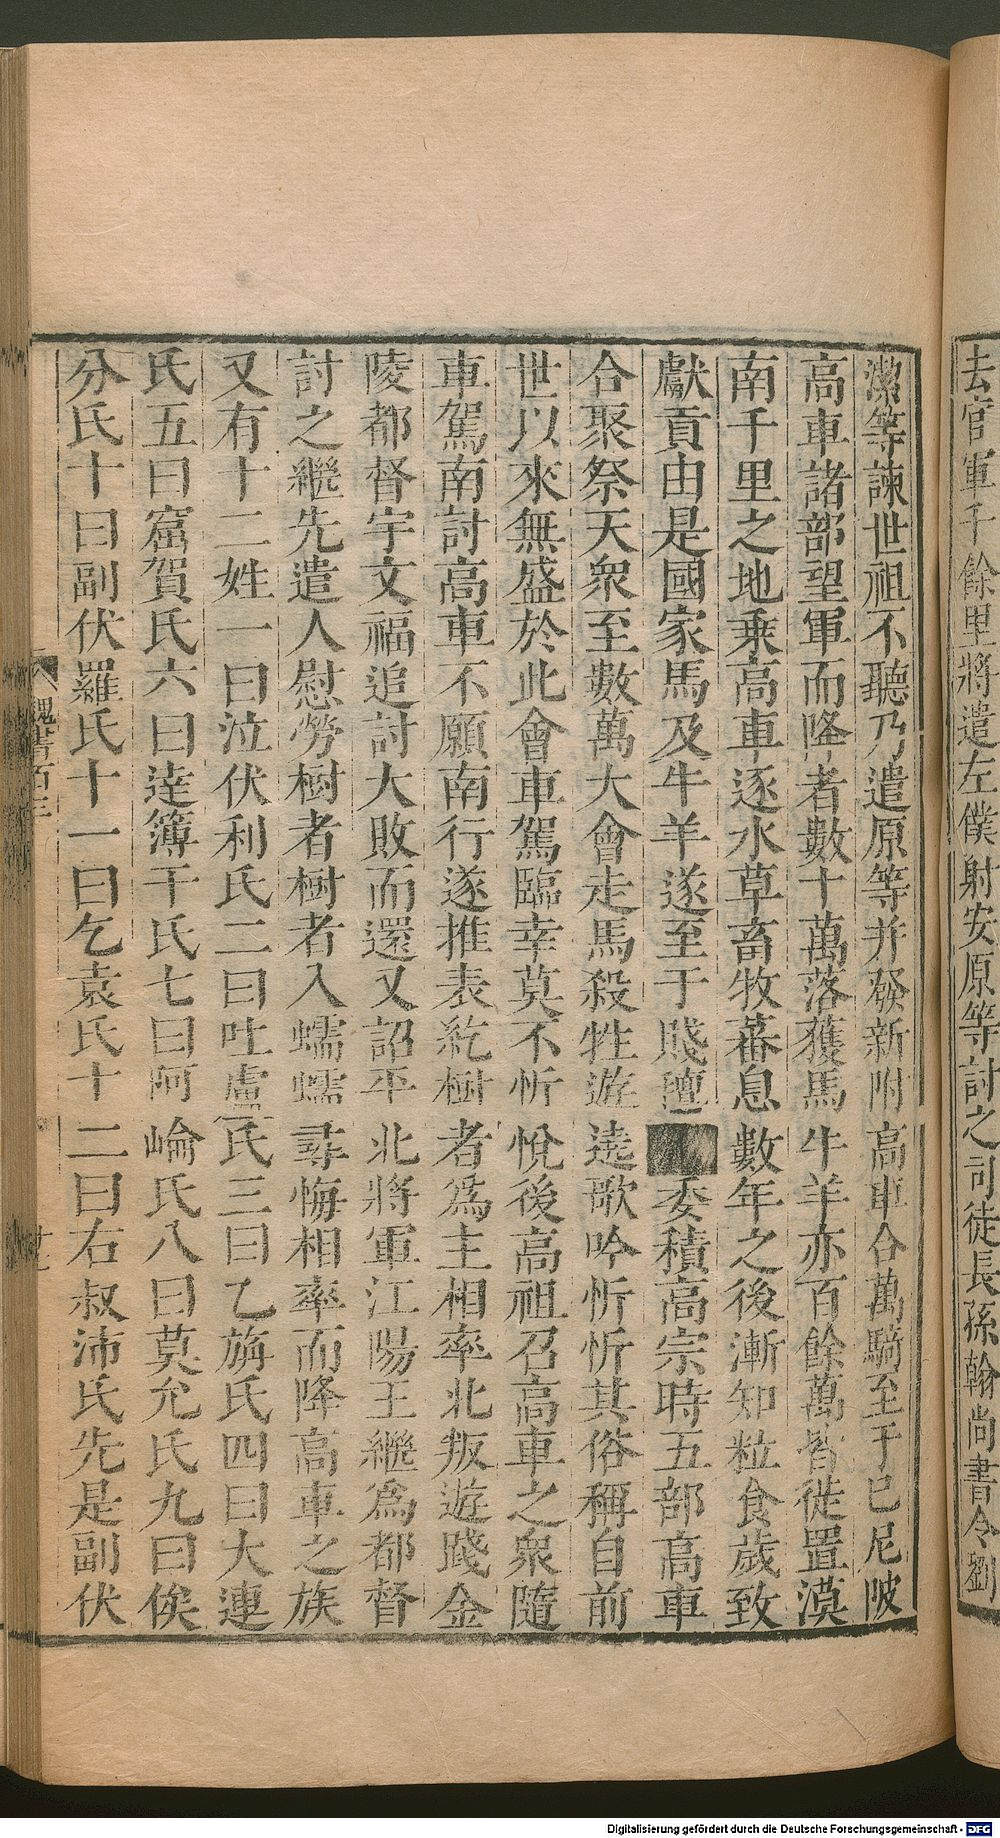 去官軍千餘里將遣左僕射安原等討之司徒長孫翰尚書令劉
潔等諫世祖不聽乃遣原等并發新附高車合萬騎至于已尼陂
高車諸部望軍而降者數十萬落獲馬牛羊亦百餘萬皆徙置漠
南千里之地乗高車逐水草畜牧蕃息數年之後漸知粒食歲致
獻貢由是國家馬及牛羊遂至于賤氊委積高宗時五部高車
合聚祭天衆至數萬大會走馬殺牲遊遶歌吟忻忻其俗稱自前
世以來無盛於此會車駕臨幸莫不忻悅後高祖召高車之衆隨
車駕南討高車不願南行遂推表紇樹者爲主相率北叛遊踐金
陵都督宇文福追討大敗而還又詔平北將軍江陽王繼爲都督
討之繼先遣人慰勞樹者樹者入蠕蠕尋悔相率而降高車之族
又有十二姓一曰泣伏利氏二曰吐盧氏三曰乙旃氏四曰大連
氏五曰窟賀氏六曰達簿干氏七曰阿崘氏八曰莫允氏九曰俟
分氏十曰副伏羅氏十一曰乞袁氏十二曰右叔沛氏先是副伏
魏書百三
廿七
Digitalisierung gefördert durch die Deutsche Forschungsgemeinschaft - DFG